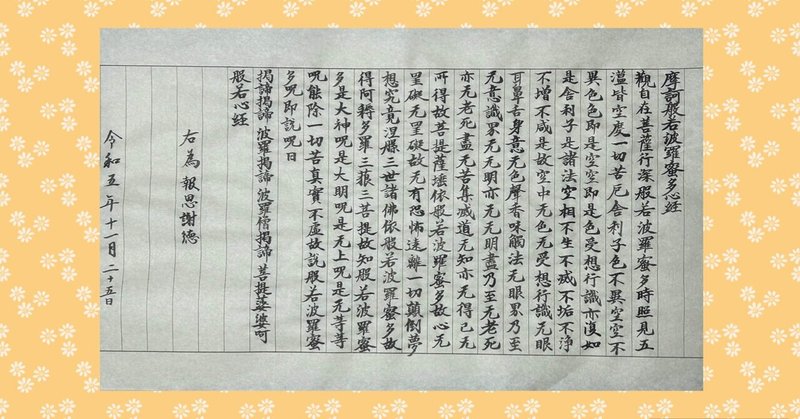 摩訶般若波羅蜜多心經
觀自在菩薩行深般若波羅蜜多時照見五
蘊皆空度一切苦厄舍利子色不異空空不
異色色即是空空即是色受想行識亦復如
是舍利子是諸法空相不生不滅不垢不浄
不增不减是故空中无色无受想行識无眼
耳鼻舌身意无色聲香味觸法无眼界乃至
无意識界无无明亦无无明盡乃至无老死
亦无老死盡无苦集滅道无知亦无得已无
所得故菩提薩埵依般若波羅蜜多故心无
罣礙无罣礙故无有恐怖遠離一切顛倒夢
想究竟涅槃三世諸佛依般若波羅蜜多故
得阿耨多羅三藐三菩提故知般若波羅蜜
多是大神呪是大明呪是无上呪是无等等
呪能除一切苦真實不虚故說般若波羅蜜
多呪即說呪曰
揭諦揭諦 波羅揭諦 波羅僧揭諦 菩提薩婆呵
般若心經
右為報恩謝德
令和五年十一月二十五日